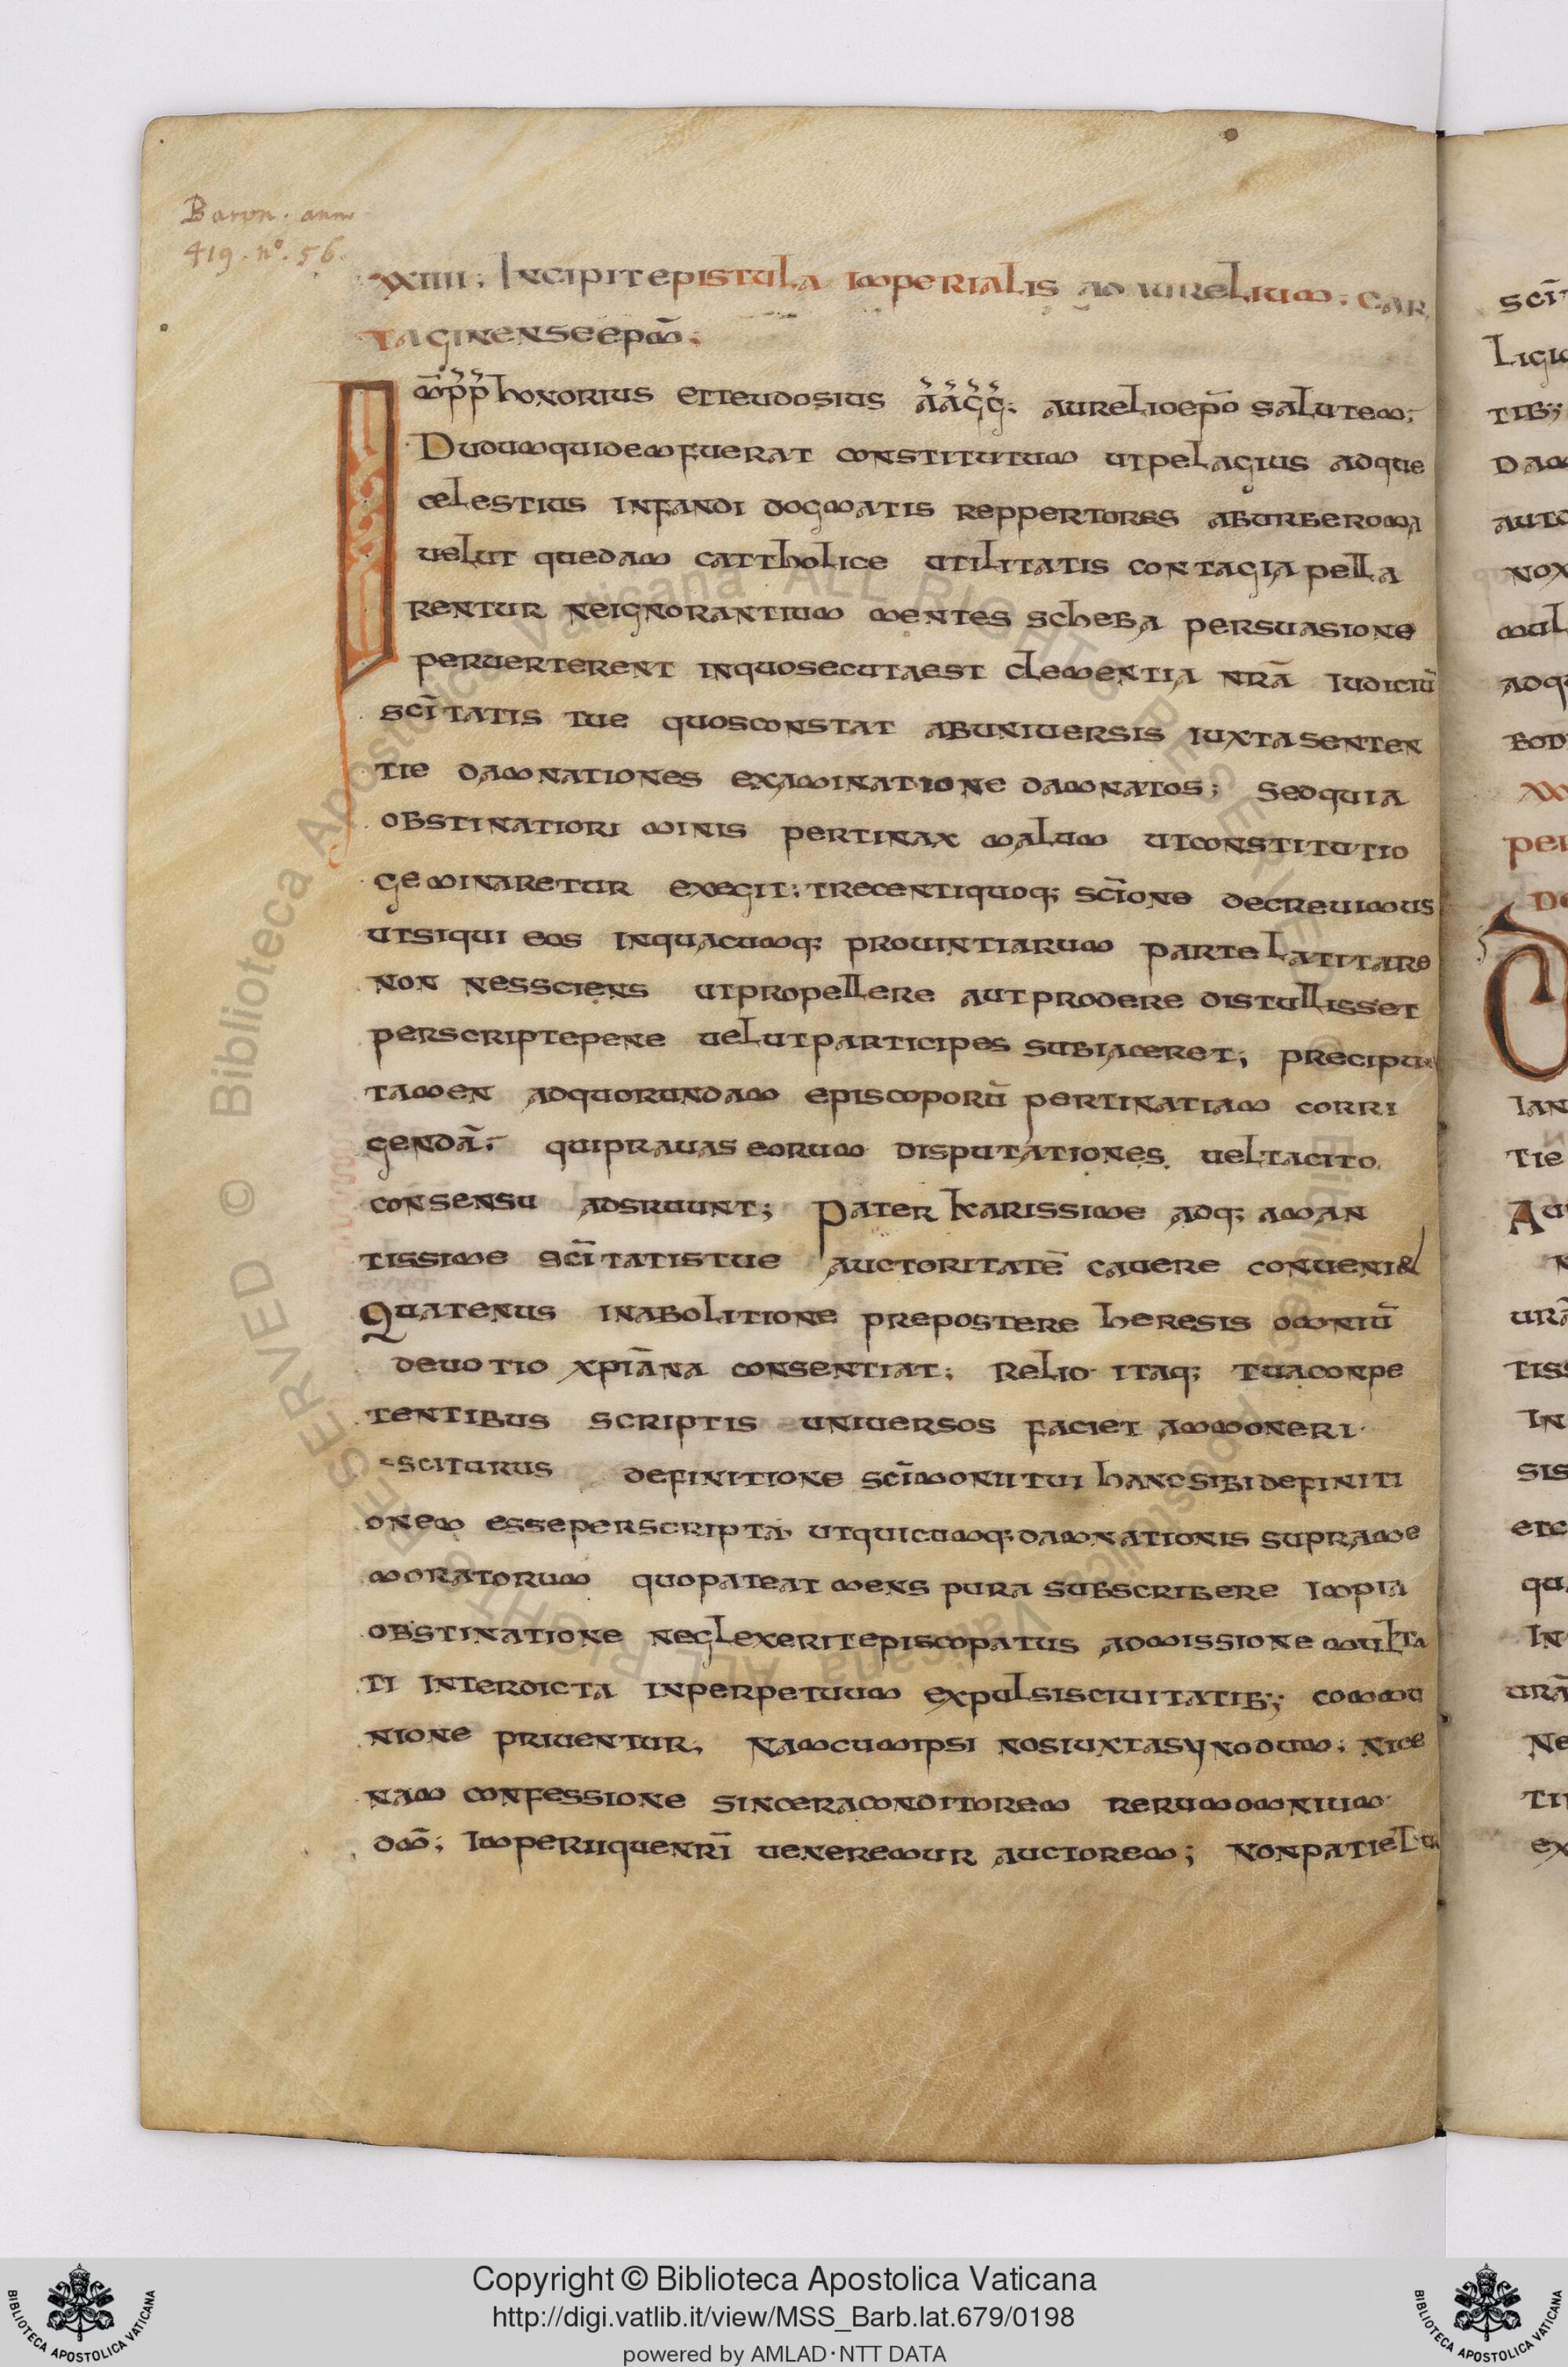 Baron. anno
419. nº. 56.
XXIIII; Incipit epistula imperialis ad aurelium; car
taginense epm̄;
Im̄p̄p̄ honorius et teudosius āāḡḡ; aurelio ep̄o salutem;
Dudum quidem fuerat constitutum ut pelagius adque
celestius infandi dogmatis reppertores ab urbe roma
uelut quedam cattholice utilitatis contagia pella
rentur ne ignorantium mentes scheba persuasione
peruerterent in quo secuta est clementia nrā iudiciū
scītatis tue quos constat ab uniuersis iuxta senten
tie damnationes examinatione damnatos; sed quia
obstinatiori minis pertinax malum ut constitutio
geminaretur exegit; trecenti quoq; scīone decreuimus
ut si qui eos in quacumq; prouintiarum parte latitare
non nessciens ut propellere aut prodere distullisset
perscripte pene uelut particips subiaceret; precipue
tamen ad quorundam episcoporū pertinatiam corri
gendā; qui prauas eorum disputationes uel tacito
consensu adsruunt; Pater karissime adq; aman
tissime scītatis tue auctoritatē cauere conueni&
Quatenus in abolitione prepostere heresis omniū
deuotio xpiāna consentiat; Relio itaq; tua conpe
tentibus scriptis uniuersos faciet ammoneri
sciturus definitione scīmonii tui hanc sibi definiti
onem esse perscripta ut quicumq; damnationis suprame
moratorum quo pateat mens pura subscribere impia
obstinatione neglexerit episcopatus admissione multa
ti interdicta in perpetuum expulsis ciuitatib;; commu
nione priuentur, Nam cum ipsi nos iuxta synodum; nice
nam confessione sincera conditorem rerum omnium
dm̄; Imperiique nrī ueneremur auctorem; Non patielu
scī
Ligi
tib;
dam
auto
nox
mul
adq
bod
XX
per
de
Ian
tie
Au
urā
tiss
In
sis
etc
qu
In
urā
Ne
ti
ex
Copyright © Biblioteca Apostolica Vaticana
http://digi.vatlib.it/view/MSS_Barb.lat.679/0198
powered by AMLAD·NTT DATA
BIBLIOTECA APOSTOLICA VATICANA
BIBLIOTECA APOSTOLICA VATICANA
© Biblioteca Apostolica Vaticana ALL RIGHTS RESERVED © Biblioteca Apostolica Vaticana ALL RIGHTS RESERVED